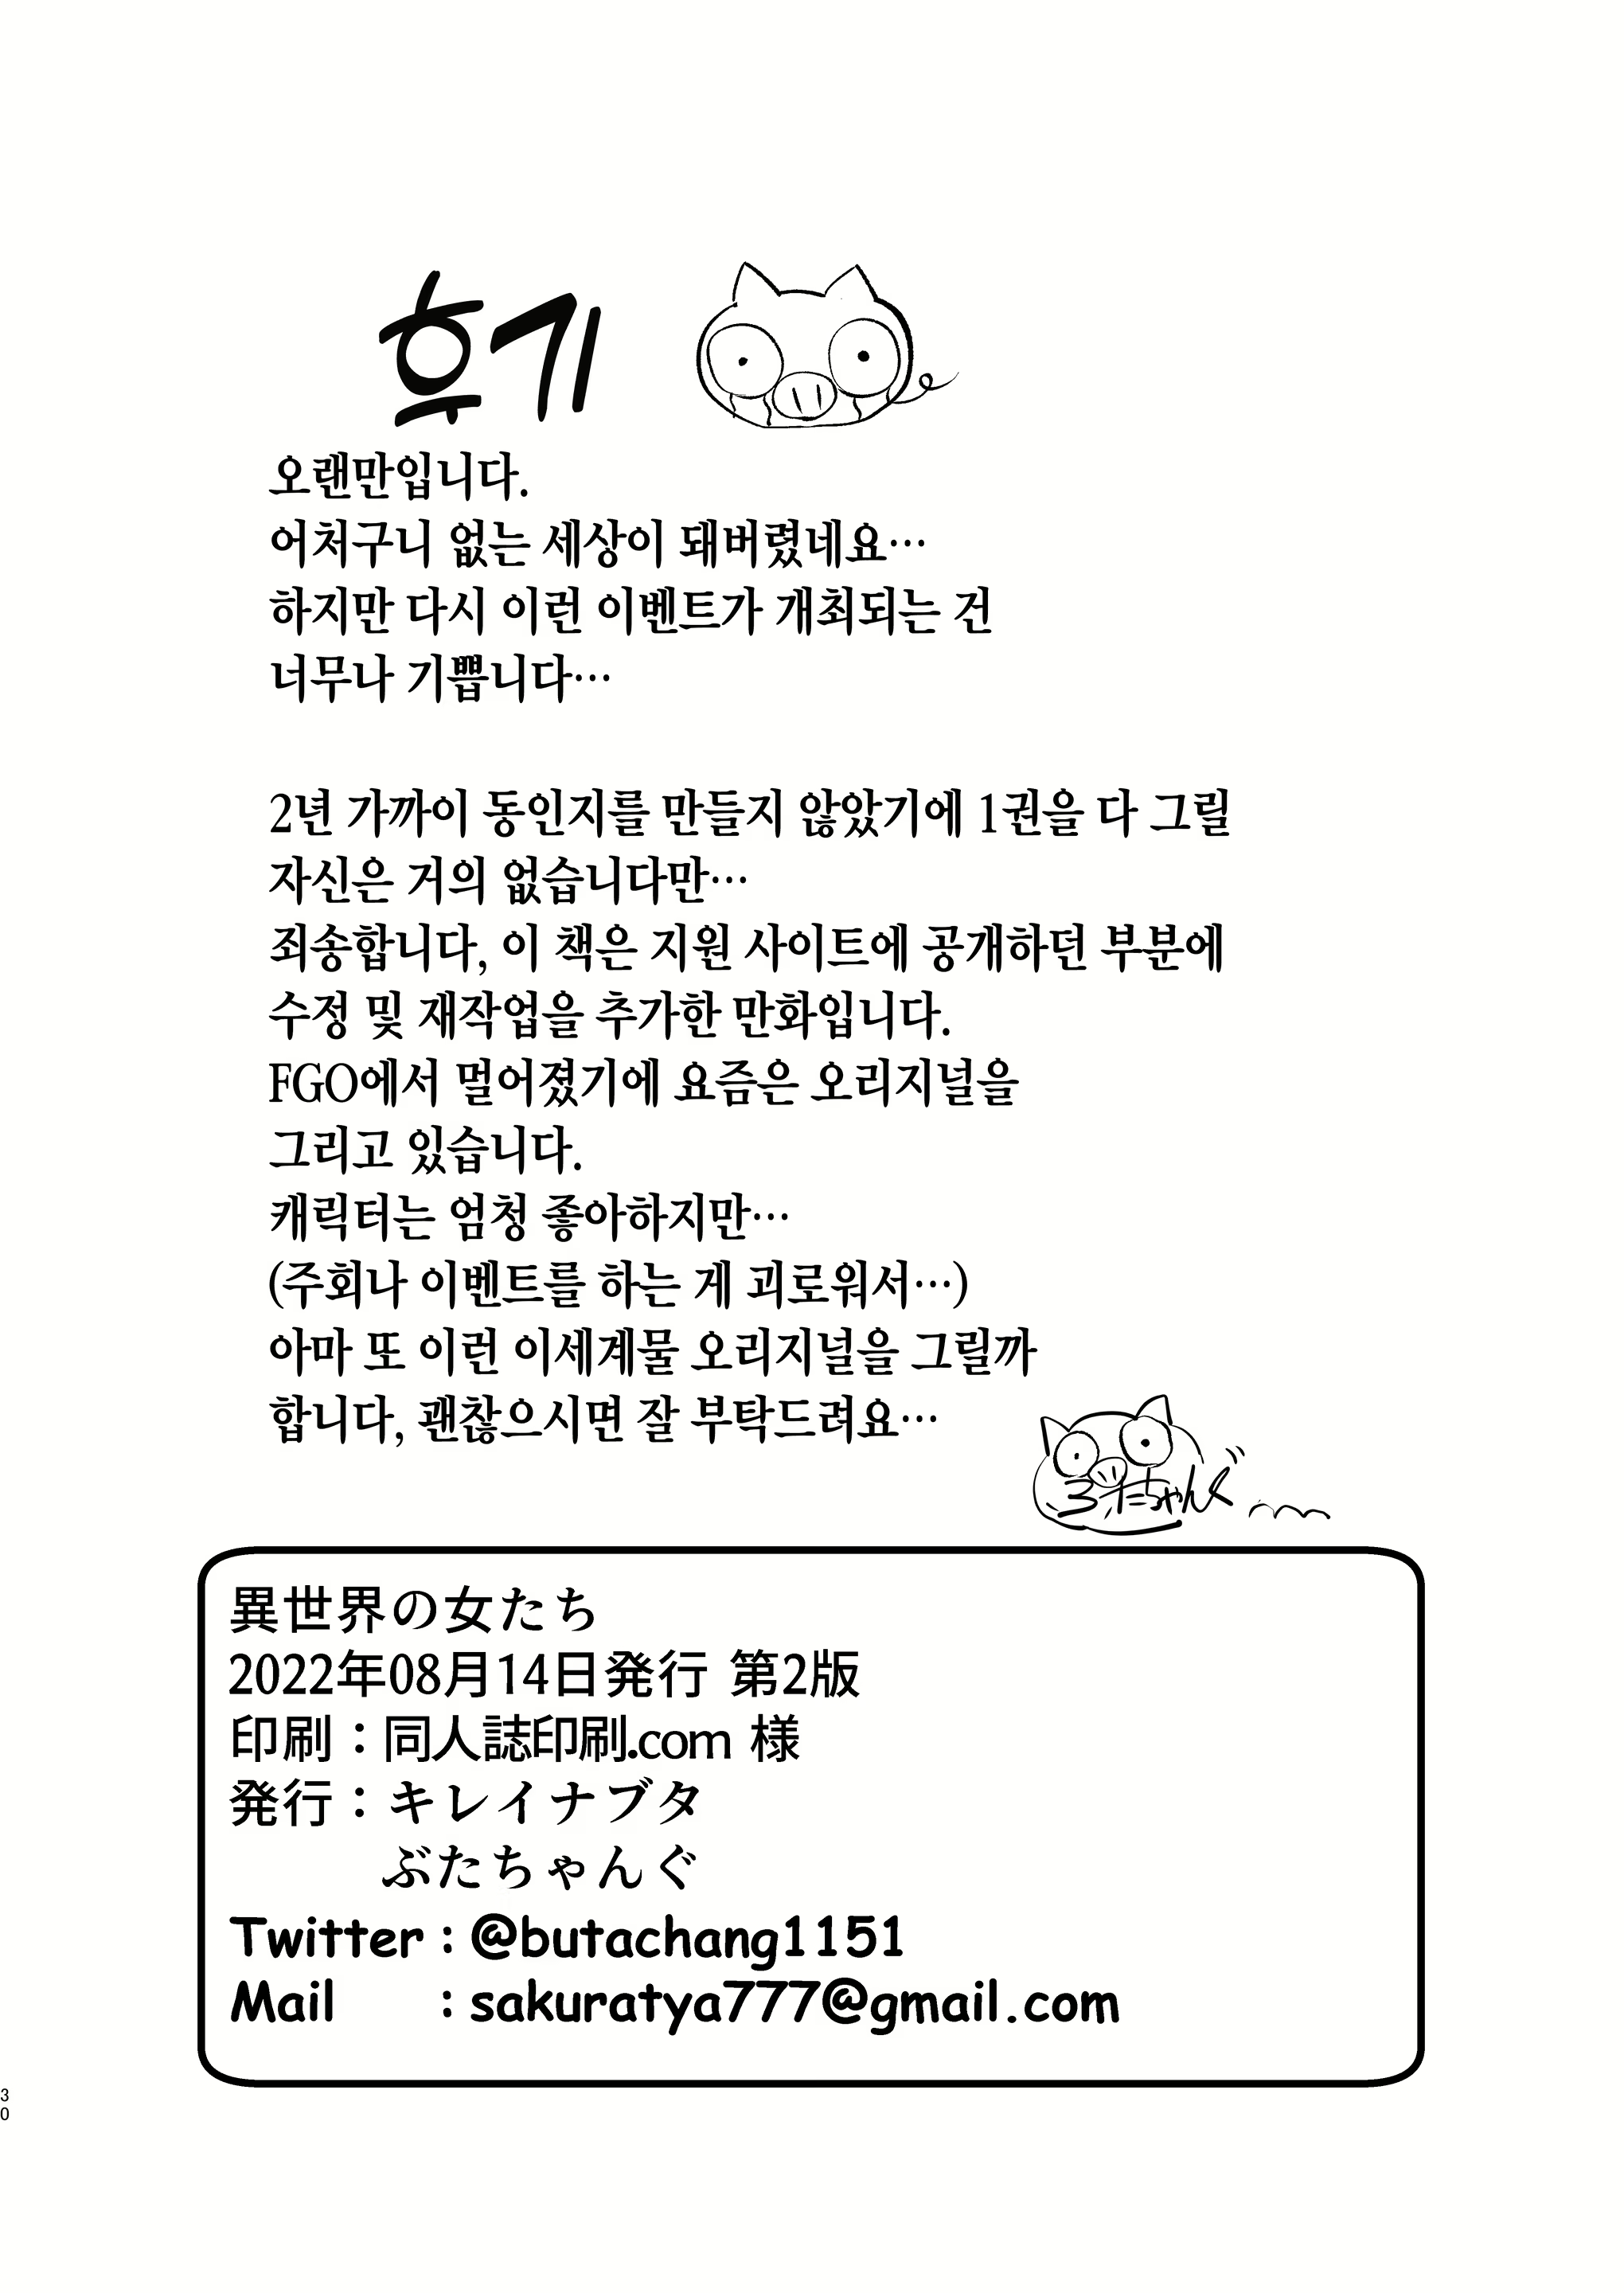 후기
오랜만입니다.
어처구니 없는 세상이 돼버렸네요…
하지만 다시 이런 이벤트가 개최되는 건
너무나 기쁩니다…
2년 가까이 동인지를 만들지 않았기에 1권을 다 그릴
자신은 거의 없습니다만…
죄송합니다, 이 책은 지원 사이트에 공개하던 부분에
수정 및 재작업을 추가한 만화입니다.
FGO에서 멀어졌기에 요즘은 오리지널을
그리고 있습니다.
캐릭터는 엄청 좋아하지만…
(주회나 이벤트를 하는 게 괴로워서…)
아마 또 이런 이세계물 오리지널을 그릴까
합니다, 괜찮으시면 잘 부탁드려요…
ぶたちゃんぐ
異世界の女たち
2022年08月14日発行 第2版
印刷：同人誌印刷.com 様
発行：キレイナブタ
ぶたちゃんぐ
Twitter : @butachang1151
Mail : sakuratya777@gmail.com
30